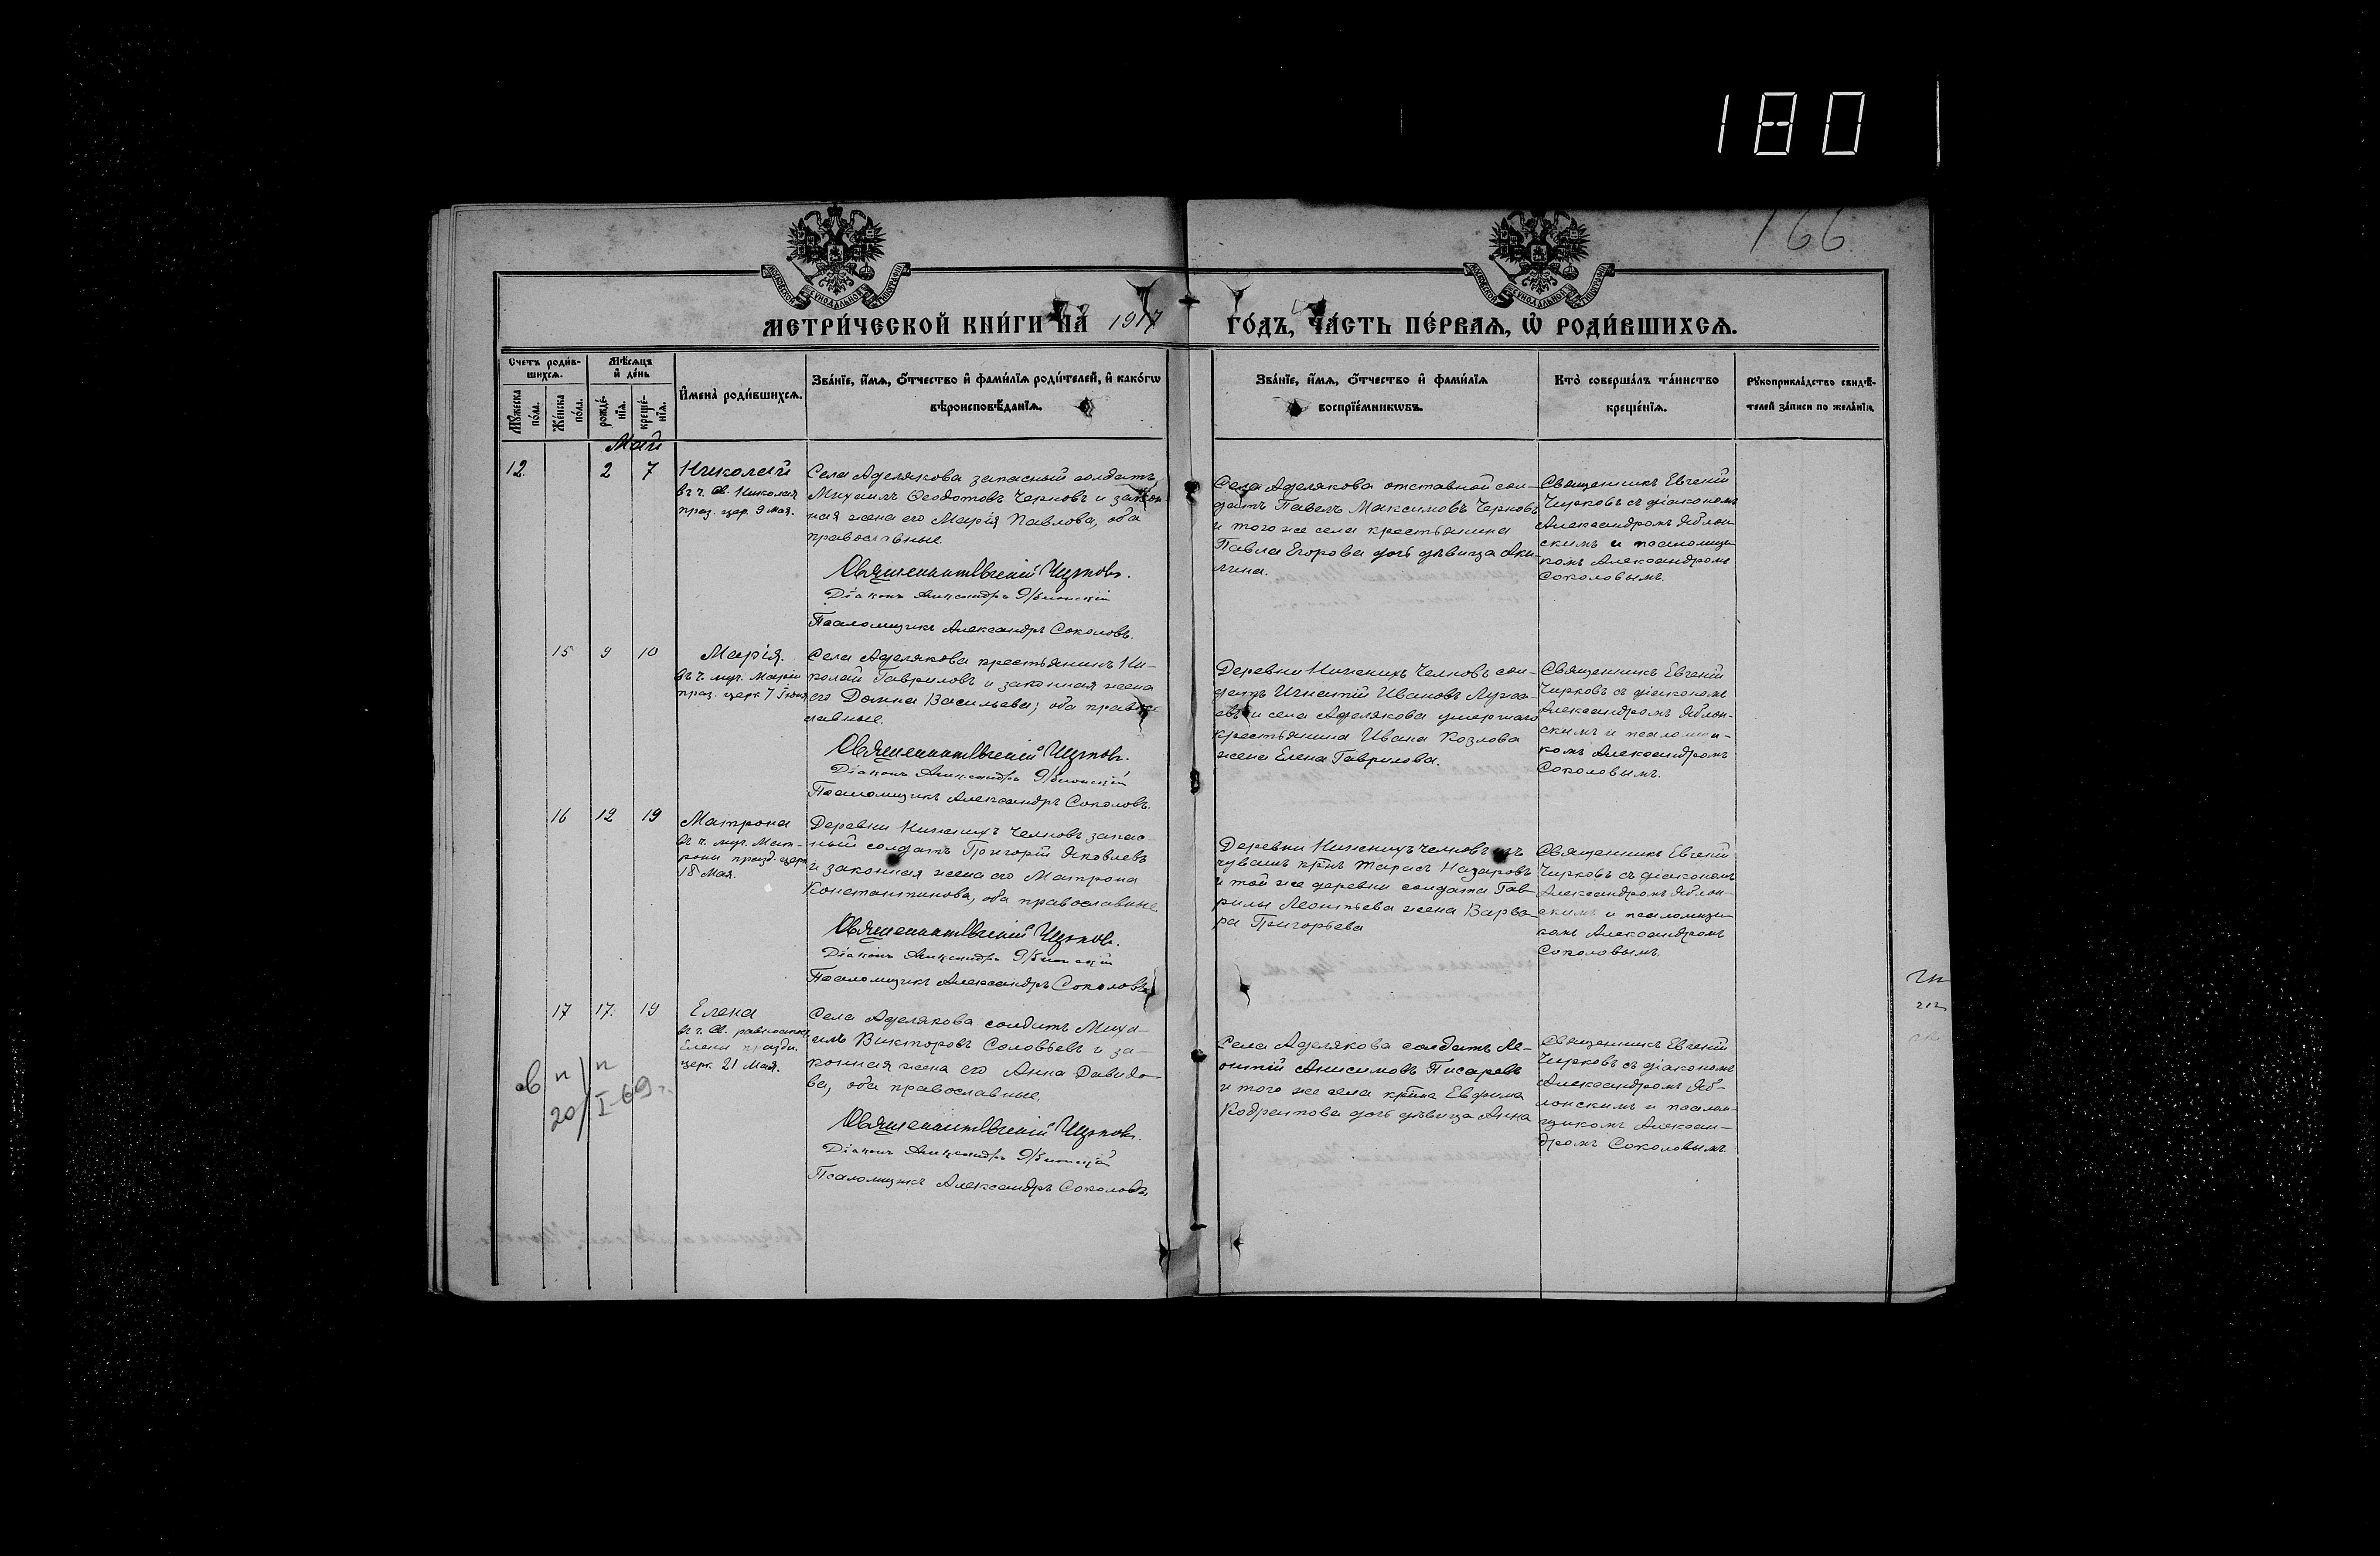 180
166
МОСКОВСКОЙ СѴНОДАЛЬНОЙ ТИПОГРАФІИ
МОСКОВСКОЙ СѴНОДАЛЬНОЙ ТИПОГРАФІИ
МЕТРИ́ЧЕСКОЙ КНИ́ГИ НА 1917 ГО́ДЪ, ЧА́СТЬ ПЕ́РВАѦ, Ѡ҆ РОДИ́ВШИХСѦ.
Счетъ роди́в-
шихсѧ.
Мꙋ́жеска
по́ла.
Же́нска
по́ла.
Мѣ́сѧцъ
и҆ де́нь
рожде́-
нїѧ.
креще́-
нїѧ.
И҆мена̀ роди́вшихсѧ.
Зва́нїе, и҆́мѧ, ѻ҆́тчество и҆ фами́лїѧ роди́телей, и҆ како́гѡ
вѣроисповѣ́данїѧ.
Зва́нїе, и҆́мѧ, ѻ҆́тчество и҆ фами́лїѧ
воспрїе́мникѡвъ.
Кто̀ соверша́лъ та́инство
креще́нїѧ.
Рꙋкоприкла́дство свидѣ́-
телей за́писи по жела́нїю.
Май
12. 2 7
Николай
въ ч. св. Николая
праз. цер. 9 мая.
Села Аделякова запасный солдатъ
Михаилъ Ѳеодотовъ Черновъ и закон
ная жена его Марія Павлова, оба
православные.
Священникъ Евгеній Чирковъ.
Діаконъ Александръ Яблонскій
Псаломщикъ Александръ Соколовъ.
Села Аделякова отставной сол-
датъ Павелъ Максимовъ Черновъ
и того же села крестьянина
Павла Егорова дочь дѣвица Аки-
лина.
Священникъ Евгеній
Чирковъ съ діакономъ
Александромъ Яблон
скимъ и псаломщи
комъ Александромъ
Соколовымъ.
15 9 10
Марія.
въ ч. муч. Маріи
праз. церк. 7 Іюня
Села Аделякова крестьянинъ Ни-
колай Гавриловъ и законная жена
его Домна Васильева; оба право-
славные.
Священникъ Евгеній Чирковъ.
Діаконъ Александръ Яблонскій
Псаломщикъ Александръ Соколовъ.
Деревни Нижнихъ Челновъ сол-
датъ Игнатій Ивановъ
и села Аделякова умершаго
крестьянина Ивана Козлова
жена Елена Гаврилова.
Священникъ Евгеній
Чирковъ съ діакономъ
Александромъ Яблон-
скимъ и псаломщи-
комъ Александромъ
Соколовымъ.
16 12 19
Матрона
въ ч. муч. Мат-
роны празд. церк
18 Мая.
Деревни Нижнихъ Челновъ запас-
ный солдатъ Григорій Яковлевъ
и законная жена его Матрона
Константинова, оба православные
Священникъ Евгеній Чирковъ.
Діаконъ Александръ Яблонскій
Псаломщикъ Александръ Соколовъ
Деревни Нижнихъ Челновъ изъ
чувашъ крнъ Тарасъ Назаровъ
и той же деревни солдата Гав-
рилы Леонтьева жена Варва-
ра Григорьева
Священникъ Евгеній
Чирковъ съ діакономъ
Александромъ Яблон-
скимъ и псаломщи-
комъ Александромъ
Соколовымъ.
17 17. 19
Елена
въ ч. св. равноапос.
Елены праздн.
церк. 21 Мая.
Села Аделякова солдатъ Миха-
илъ Викторовъ Соловьевъ и за-
конная жена его Анна Давидо-
ва, оба православные.
Священникъ Евгеній Чирковъ.
Діаконъ Александръ Яблонскій
Псаломщикъ Александръ Соколовъ.
Села Аделякова солдатъ Ле-
онтій Анисимовъ Писаревъ
и того же села крна Евфима
Кодрентова дочь дѣвица Анна
Священникъ Евгеній
Чирковъ съ діакономъ
Александромъ Яб-
лонскимъ и псалом-
щикомъ Алексан-
дромъ Соколовымъ.
св п/п
20/I-69 г.